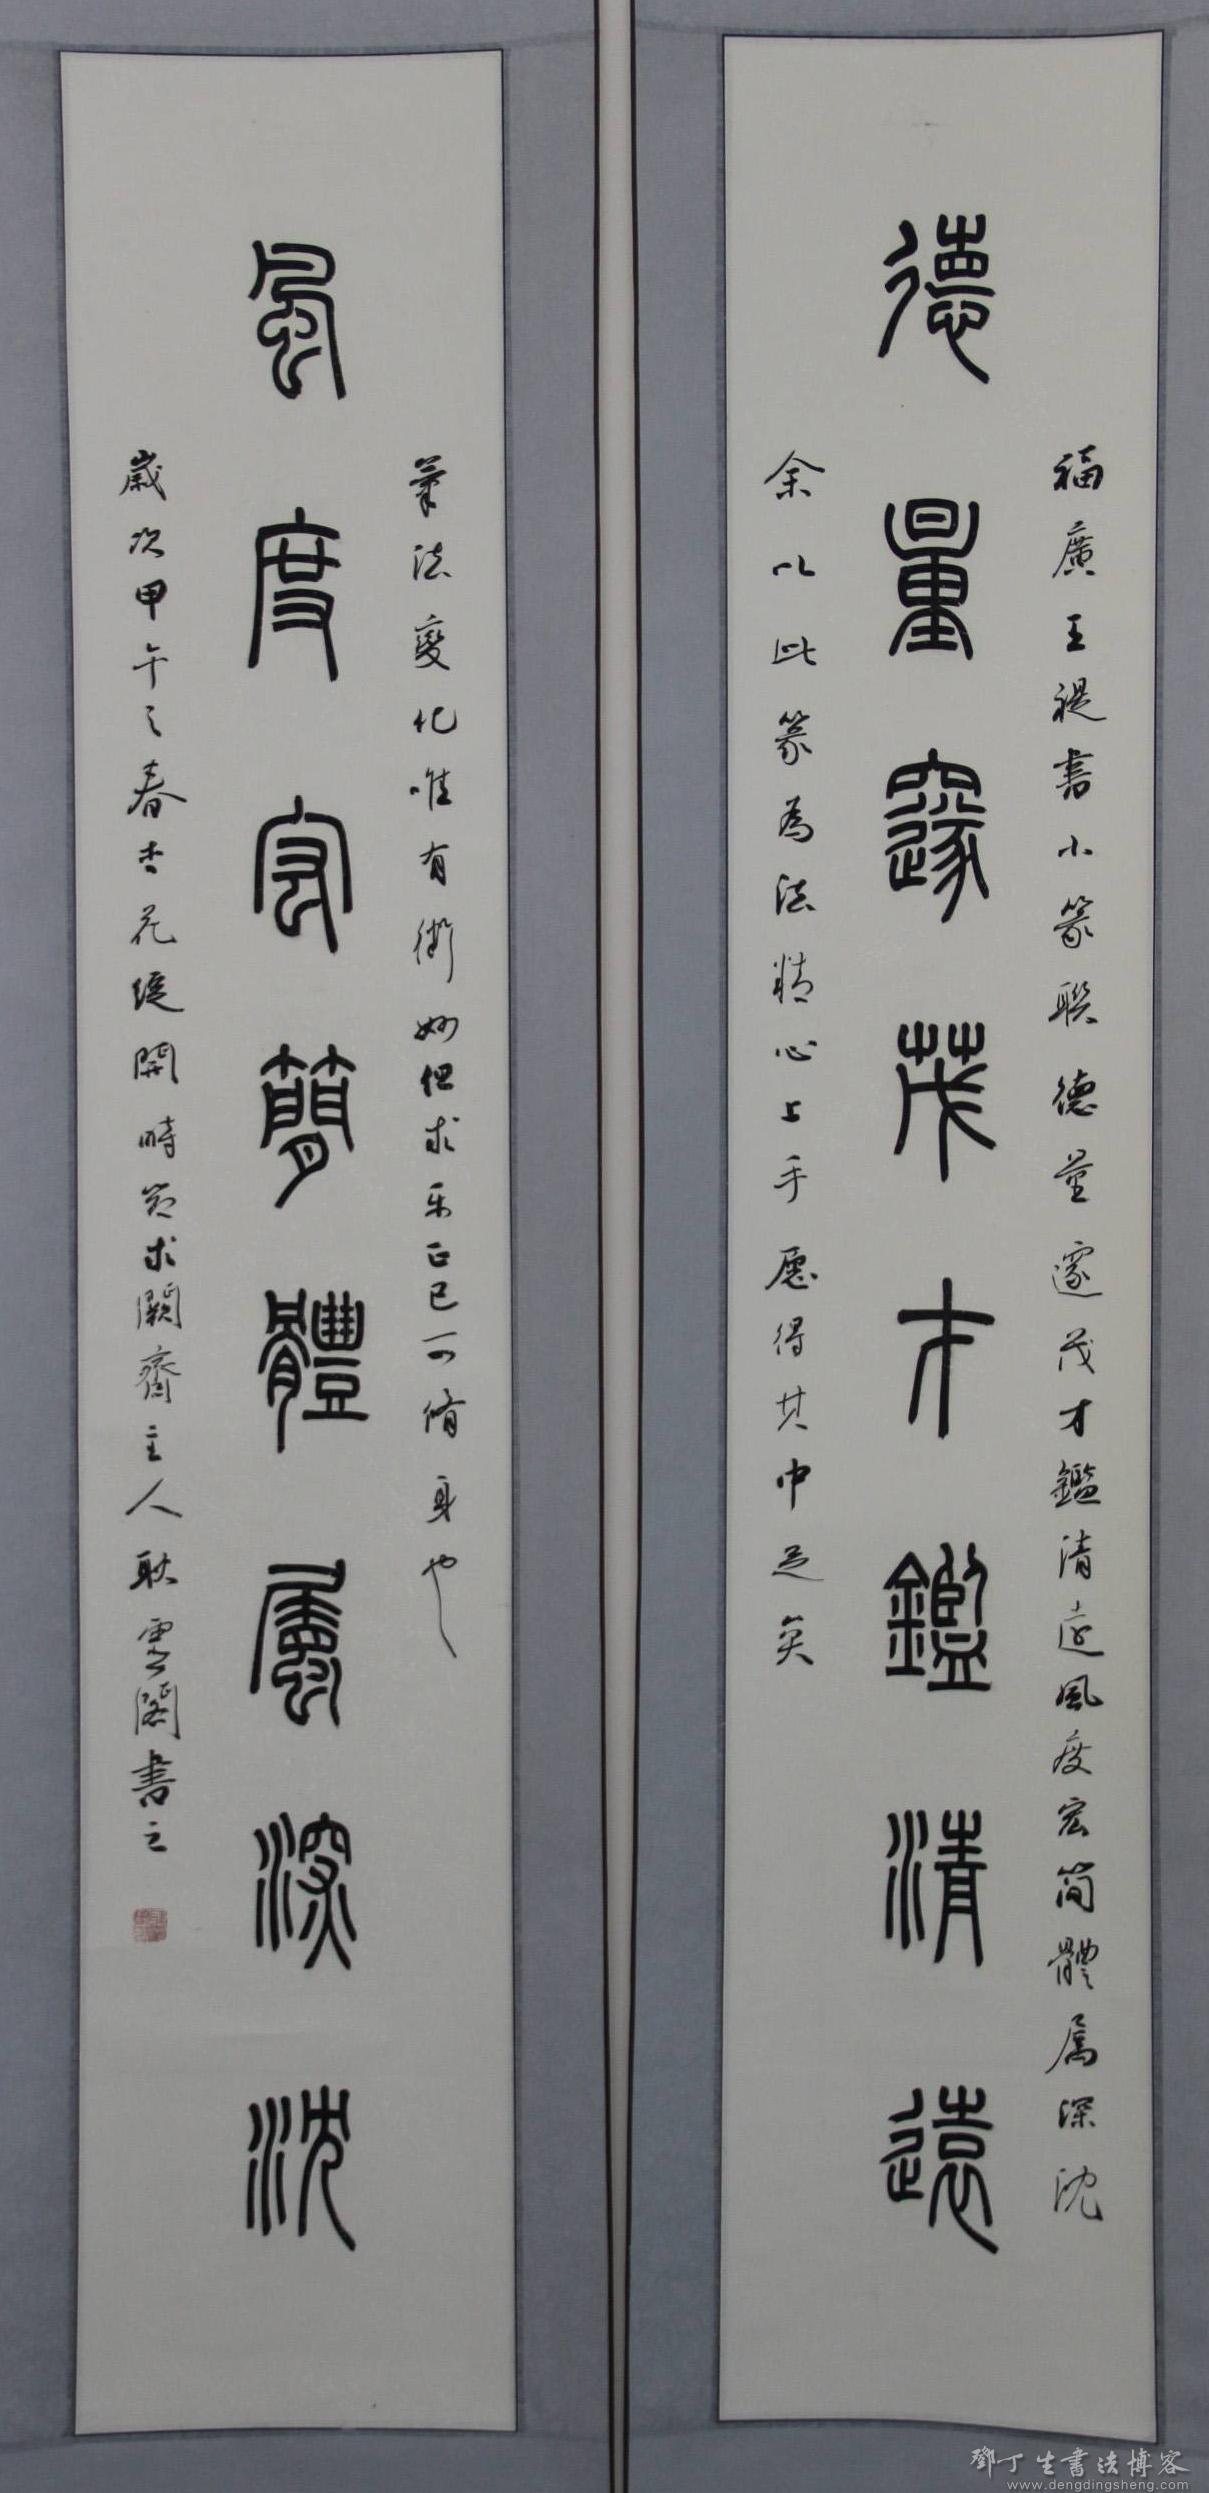 福廣王禔書小篆聯德量邃茂才鑑清遠風度宏簡體局深沈
德量邃茂才鑑清遠
余以此篆為法精心上手愿得其中足矣
筆法變化唯有術妙但求乐正已可脩身也
風度宏簡體局深沈
歲次甲午之春杏花綻開時節求闕齋主人耿雲閣書之
鄧丁生書法博客
www.dengdingsheng.com